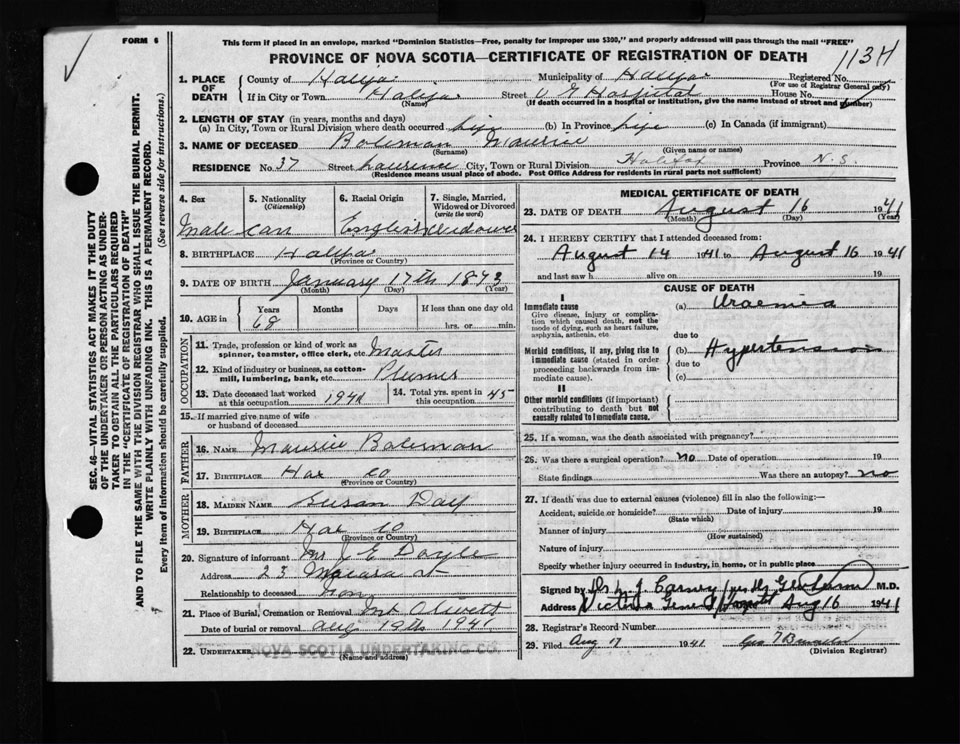 FORM 6
This form if placed in an envelope, marked "Dominion Statistics—Free, penalty for improper use $300," and properly addressed will pass through the mail "FREE"
PROVINCE OF NOVA SCOTIA—CERTIFICATE OF REGISTRATION OF DEATH
1. PLACE OF DEATH County of Halifax Municipality of Halifax Registered No.
(For use of Registrar General only)
If in City or Town Halifax Street V G Hospital House No.
(Name) (If death occurred in a hospital or institution, give the name instead of street and number)
2. LENGTH OF STAY (in years, months and days)
(a) In City, Town or Rural Division where death occurred life (b) In Province life (c) In Canada (if immigrant)
3. NAME OF DECEASED Bateman Maurice
(Surname) (Given name or names)
RESIDENCE No. 37 Street Lawrence City, Town or Rural Division Halifax Province N.S.
(Residence means usual place of abode. Post Office Address for residents in rural parts not sufficient)
4. Sex 5. Nationality (Citizenship) 6. Racial Origin 7. Single, Married, Widowed or Divorced (write the word)
Male Can English Widower
8. BIRTHPLACE Halifax
(Province or Country)
9. DATE OF BIRTH January 17th 1873
(Month) (Day) (Year)
10. AGE in Years Months Days If less than one day old
68 hrs. or min.
OCCUPATION
11. Trade, profession or kind of work as spinner, teamster, office clerk, etc. Master
12. Kind of industry or business, as cotton-mill, lumbering, bank, etc. Plumer
13. Date deceased last worked at this occupation 1941 14. Total yrs. spent in this occupation 45
15. If married give name of wife or husband of deceased
FATHER
16. NAME Maurice Bateman
17. BIRTHPLACE Hax Co
(Province or Country)
MOTHER
18. MAIDEN NAME Susan Day
19. BIRTHPLACE Hax Co
(Province or Country)
20. Signature of informant Mrs J E Doyle
Address 23 Macara St
Relationship to deceased
21. Place of Burial, Cremation or Removal Mt Olivett
Date of burial or removal Aug 19th 1941
22. UNDERTAKER NOVA SCOTIA UNDERTAKING CO.
(Name and address)
MEDICAL CERTIFICATE OF DEATH
23. DATE OF DEATH August 16 1941
(Month) (Day) (Year)
24. I HEREBY CERTIFY that I attended deceased from:
August 14 1941 to August 16 1941
and last saw h alive on 19
CAUSE OF DEATH
I
Immediate cause (a) Uraemia
Give disease, injury or complication which caused death, not the mode of dying, such as heart failure, asphyxia, asthenia, etc. due to
Morbid conditions, if any, giving rise to immediate cause (stated in order proceeding backwards from immediate cause). (b) Hypertension
due to
(c)
II
Other morbid conditions (if important) contributing to death but not causally related to immediate cause.
25. If a woman, was the death associated with pregnancy?
26. Was there a surgical operation? no Date of operation 19
State findings Was there an autopsy? no
27. If death was due to external causes (violence) fill in also the following:—
Accident, suicide or homicide? Date of injury 19
(State which)
Manner of injury
(How sustained)
Nature of injury
Specify whether injury occurred in industry, in home, or in public place
Signed by Dr J. Carney M.D.
Address Victoria General Hospital Aug 16 1941
28. Registrar's Record Number
29. Filed Aug 17 1941
(Division Registrar)
SEC. 46—VITAL STATISTICS ACT MAKES IT THE DUTY
OF THE UNDERTAKER OR PERSON ACTING AS UNDERTAKER TO OBTAIN ALL THE PARTICULARS REQUIRED
IN THE "CERTIFICATE OF REGISTRATION OF DEATH"
AND TO FILE THE SAME WITH THE DIVISION REGISTRAR WHO SHALL ISSUE THE BURIAL PERMIT.
WRITE PLAINLY WITH UNFADING INK. THIS IS A PERMANENT RECORD.
Every item of information should be carefully supplied. (See reverse side for instructions.)